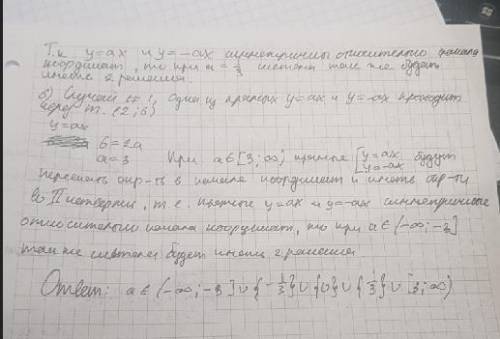 Т.к y=ax и y=-ax симметричны относительно начала
координат, то при a = 1/3 система так же будет
иметь 2 решения.
б) Случай , одна из прямых y=ax и y=-ax проходит
через т. (2;6)
y=ax
6=2a
a=3 При a∈[3;∞) прямые [y=ax y=-ax будут
пересекать окр-ть в начале координат и иметь окр-ти
во II четверти, т.е. прямые y=ax и y=-ax симметричные
относительно начала координат, то при a∈(-∞;-3]
так же система будет иметь 2 решения
Ответ: a∈(-∞;-3]∪{-1/3}∪{0}∪{1/3}∪[3;∞)